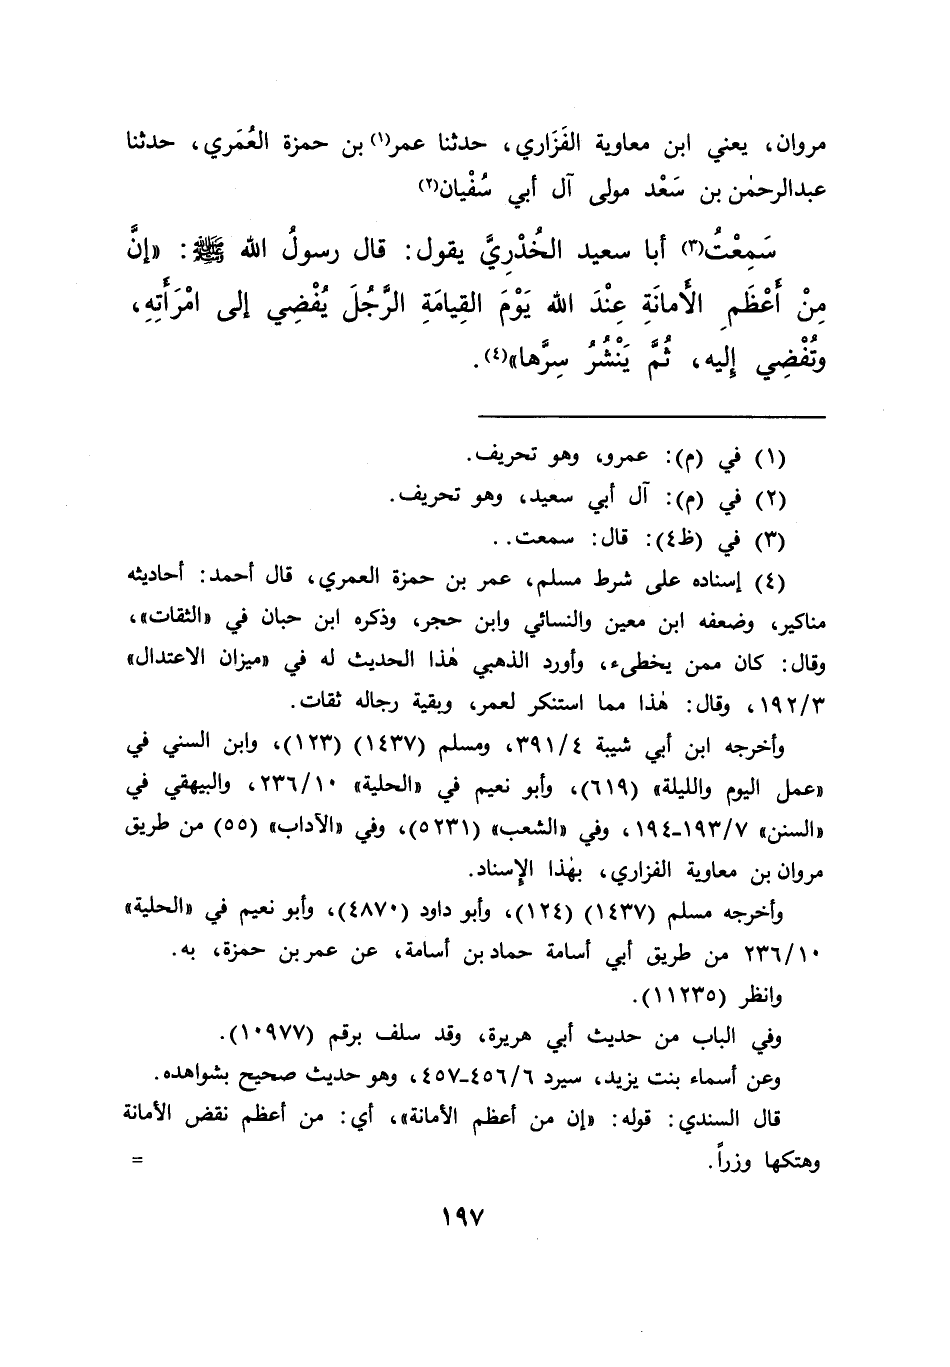 مروان، يعني ابن معاوية الفَزَاري، حدثنا عمر(١) بن حمزة العُمَري، حدثنا
عبدالرحمٰن بن سَعْد مولى آل أبي سُفْيان(٢)
سَمِعْتُ(٣) أبا سعيد الخُدْرِيَّ يقول: قال رسولُ الله ﷺ: «إنَّ
مِنْ أَعْظَمِ الأَمانَةِ عِنْدَ الله يَوْمَ القِيامَةِ الرَّجُلَ يُفْضِي إلى امْرَأَتِهِ،
وتُفْضِي إِليه، ثُمَّ يَنْشُرُ سِرَّها»(٤).
(١) في (م): عمرو، وهو تحريف.
(٢) في (م): آل أبي سعيد، وهو تحريف.
(٣) في (ظ٤): قال: سمعت..
(٤) إسناده على شرط مسلم، عمر بن حمزة العمري، قال أحمد: أحاديثه
مناكير، وضعفه ابن معين والنسائي وابن حجر، وذكره ابن حبان في «الثقات»،
وقال: كان ممن يخطىء، وأورد الذهبي هٰذا الحديث له في «ميزان الاعتدال»
١٩٢/٣، وقال: هٰذا مما استنكر لعمر، وبقية رجاله ثقات.
وأخرجه ابن أبي شيبة ٣٩١/٤، ومسلم (١٤٣٧) (١٢٣)، وابن السني في
«عمل اليوم والليلة» (٦١٩)، وأبو نعيم في «الحلية» ٢٣٦/١٠، والبيهقي في
«السنن» ١٩٣/٧-١٩٤، وفي «الشعب» (٥٢٣١)، وفي «الآداب» (٥٥) من طريق
مروان بن معاوية الفزاري، بهٰذا الإسناد.
وأخرجه مسلم (١٤٣٧) (١٢٤)، وأبو داود (٤٨٧٠)، وأبو نعيم في «الحلية»
٢٣٦/١٠ من طريق أبي أسامة حماد بن أسامة، عن عمر بن حمزة، به.
وانظر (١١٢٣٥).
وفي الباب من حديث أبي هريرة، وقد سلف برقم (١٠٩٧٧).
وعن أسماء بنت يزيد، سيرد ٤٥٦/٦-٤٥٧، وهو حديث صحيح بشواهده.
قال السندي: قوله: «إن من أعظم الأمانة»، أي: من أعظم نقض الأمانة
وهتكها وزراً. =
١٩٧